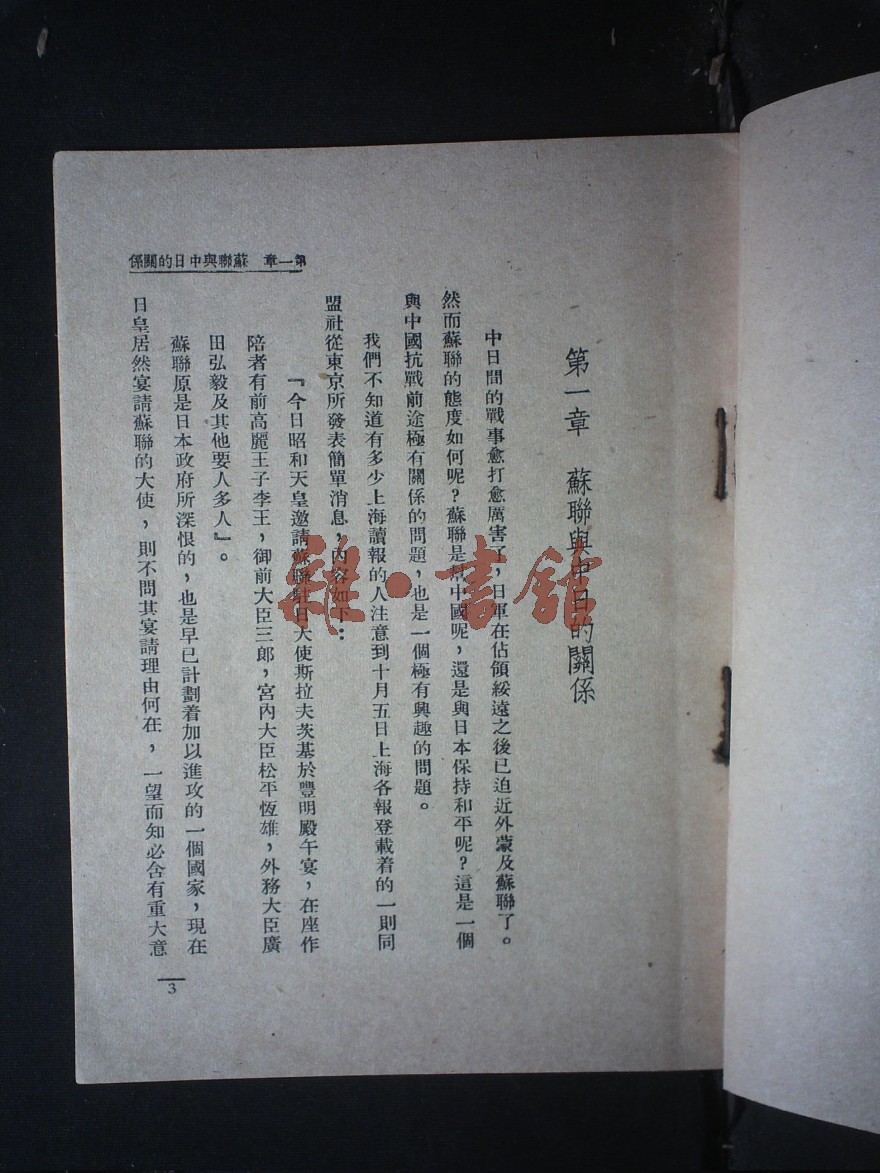 第一章　蘇聯與中日的關係
第一章　蘇聯與中日的關係
中日間的戰事愈打愈厲害了，日軍在佔領綏遠之後已迫近外蒙及蘇聯了。
然而蘇聯的態度如何呢？蘇聯是幫中國呢，還是與日本保持和平呢？這是一個
與中國抗戰前途極有關係的問題，也是一個極有興趣的問題。
我們不知道有多少上海讀報的人注意到十月五日上海各報登載着的一則同
盟社從東京所發表簡單消息，內容如下：
『今日昭和天皇邀請蘇聯駐日大使斯拉夫茨基於豐明殿午宴，在座作
陪者有前高麗王子李王，御前大臣三郎，宮內大臣松平恆雄，外務大臣廣
田弘毅及其他要人多人』。
蘇聯原是日本政府所深恨的，也是早已計劃着加以進攻的一個國家，現在
日皇居然宴請蘇聯的大使，則不問其宴請理由何在，一望而知必含有重大意
3
雜·書館